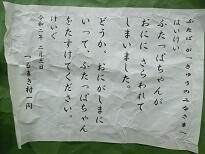 ふたばが「きゅうのみなさま
はいけい
ふたっばちゃんが
おにに さらわれて
しまいました。
どうか、おにがしまに
いって、ふたっばちゃん
をたすけてください。
けいぐ
令和二年 二月三日
つちまき村一同